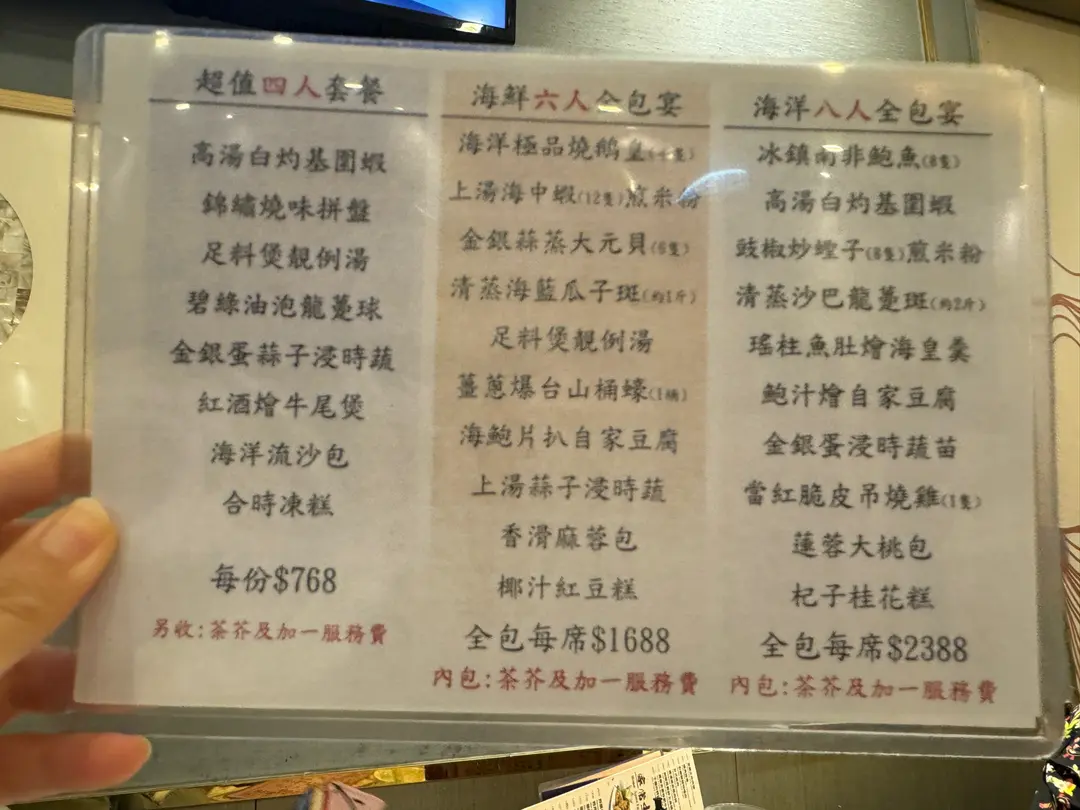 超值四人套餐
高湯白灼基圍蝦
錦繡燒味拼盤
足料煲靚例湯
碧綠油泡龍躉球
金銀蛋蒜子浸時蔬
紅酒燴牛尾煲
海洋流沙包
合時凍糕
每份$768
另收:茶芥及加一服務費
海鮮六人全包宴
海洋極品燒鵝皇
上湯海中蝦(12隻)煎米粉
金銀蒜蒸大元貝(6隻)
清蒸海藍瓜子斑(約1斤)
足料煲靚例湯
薑蔥爆台山桶蠔(1桶)
海鮑片扒自家豆腐
上湯蒜子浸時蔬
香滑麻蓉包
椰汁紅豆糕
全包每席$1688
內包:茶芥及加一服務費
海洋八人全包宴
冰鎮南非鮑魚(8隻)
高湯白灼基圍蝦
豉椒炒蟶子(8隻)煎米粉
清蒸沙巴龍躉斑(約2斤)
瑤柱魚肚燴海皇羹
鮑汁燴自家豆腐
金銀蛋浸時蔬苗
當紅脆皮吊燒雞(1隻)
蓮蓉大桃包
杞子桂花糕
全包每席$2388
內包:茶芥及加一服務費